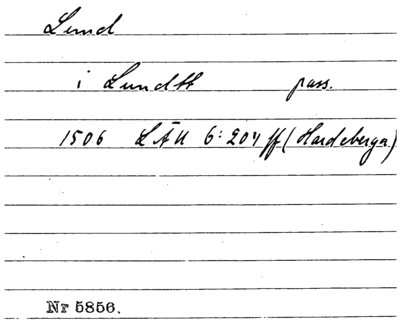 Lund
i Lundh pass.
1506 LÄU 6:204 ff (Hardeberga)
Nr 5856.